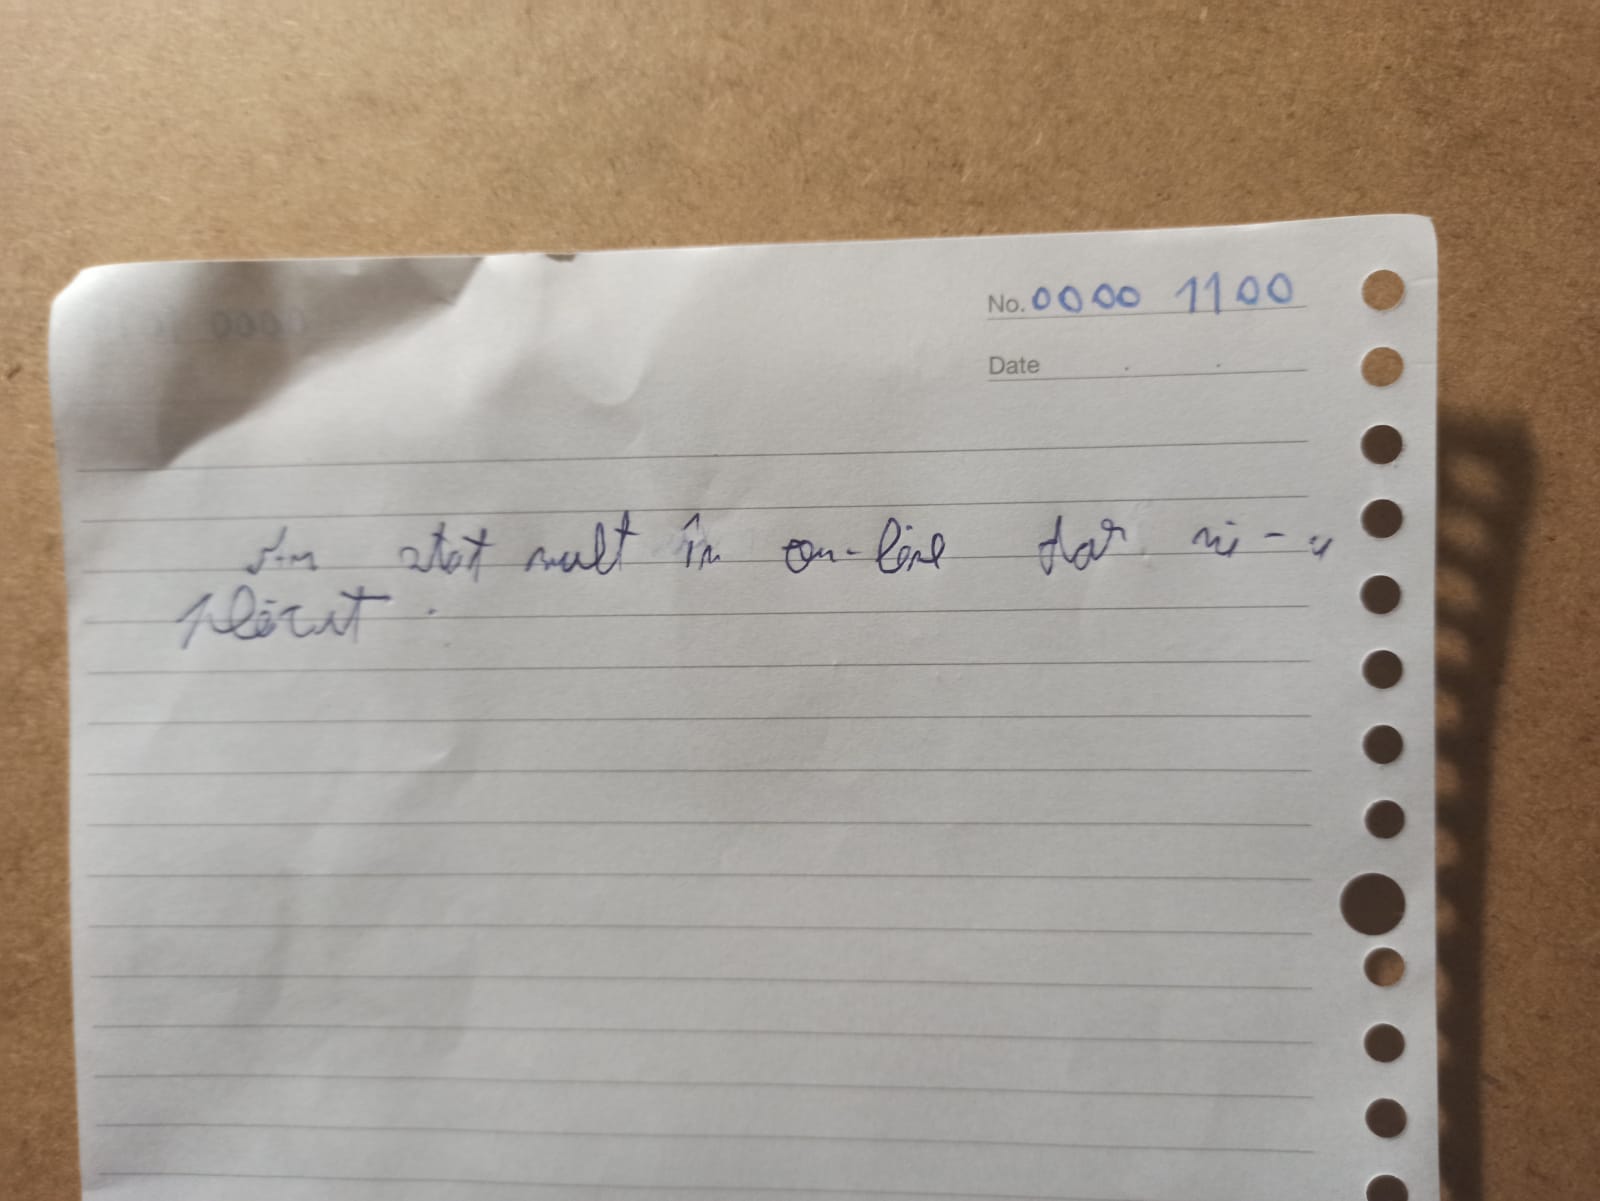 No. 0000 1100
Date . .
Am stat mult în on-line dar mi-a
plăcut.